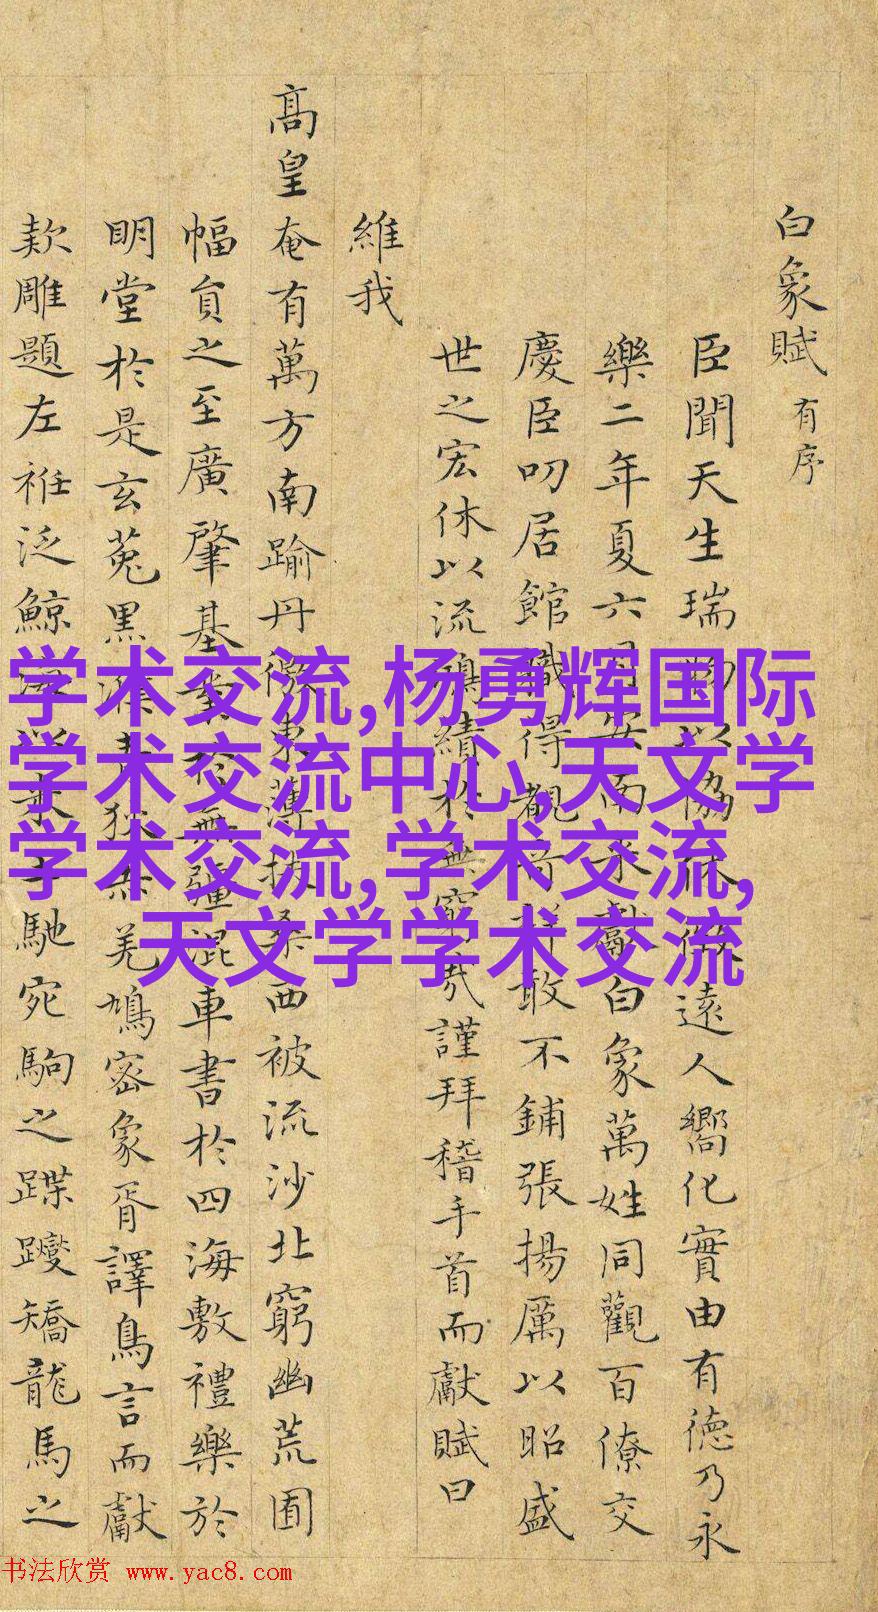 白象賦 有序
臣聞天生瑞物以協休徵遠人嚮化實由有德乃永
樂二年夏六月安南來獻白象萬姓同觀百僚交
慶臣叨居館職得覩奇祥敢不鋪張揚厲以昭盛
世之宏休以流鴻績於無窮哉謹拜稽手首而獻賦曰
維我
高皇奄有萬方南踰丹徼東薄扶桑西被流沙北窮幽荒囿
幅員之至廣肇基業於無疆混車書於四海敷禮樂於
明堂於是玄菟黑
赤羌鳩密象胥譯鳥言而獻
款雕題左衽泛鯨
馳宛駒之蹀躞矯龍馬之
学术交流,杨勇辉国际
学术交流中心,天文学
学术交流,学术交流,
天文学学术交流
书法欣赏 www.yac8.com